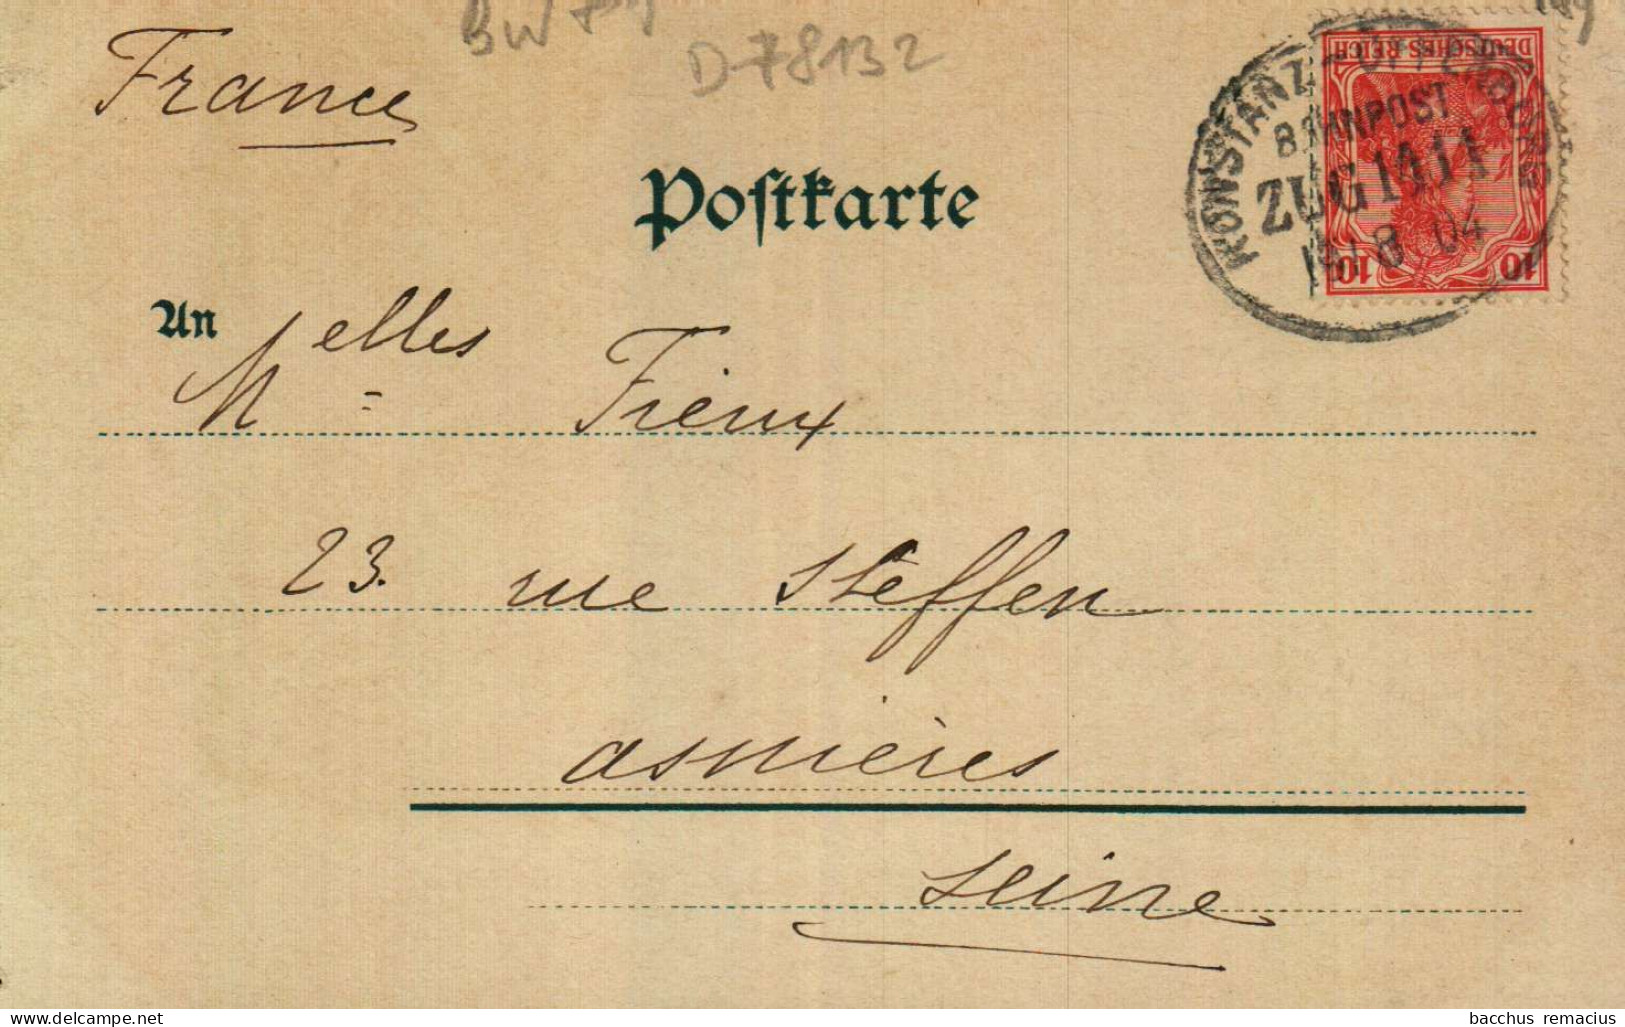 BW
D-78132
France
Postkarte
DEUTSCHES REICH
10 10
KONSTANZ-OFFENBURG
BAHNPOST
ZUG 1411
19/8 04
An
Melles Fieux
23. rue Steffen
asnières
Seine
bacchus remacius